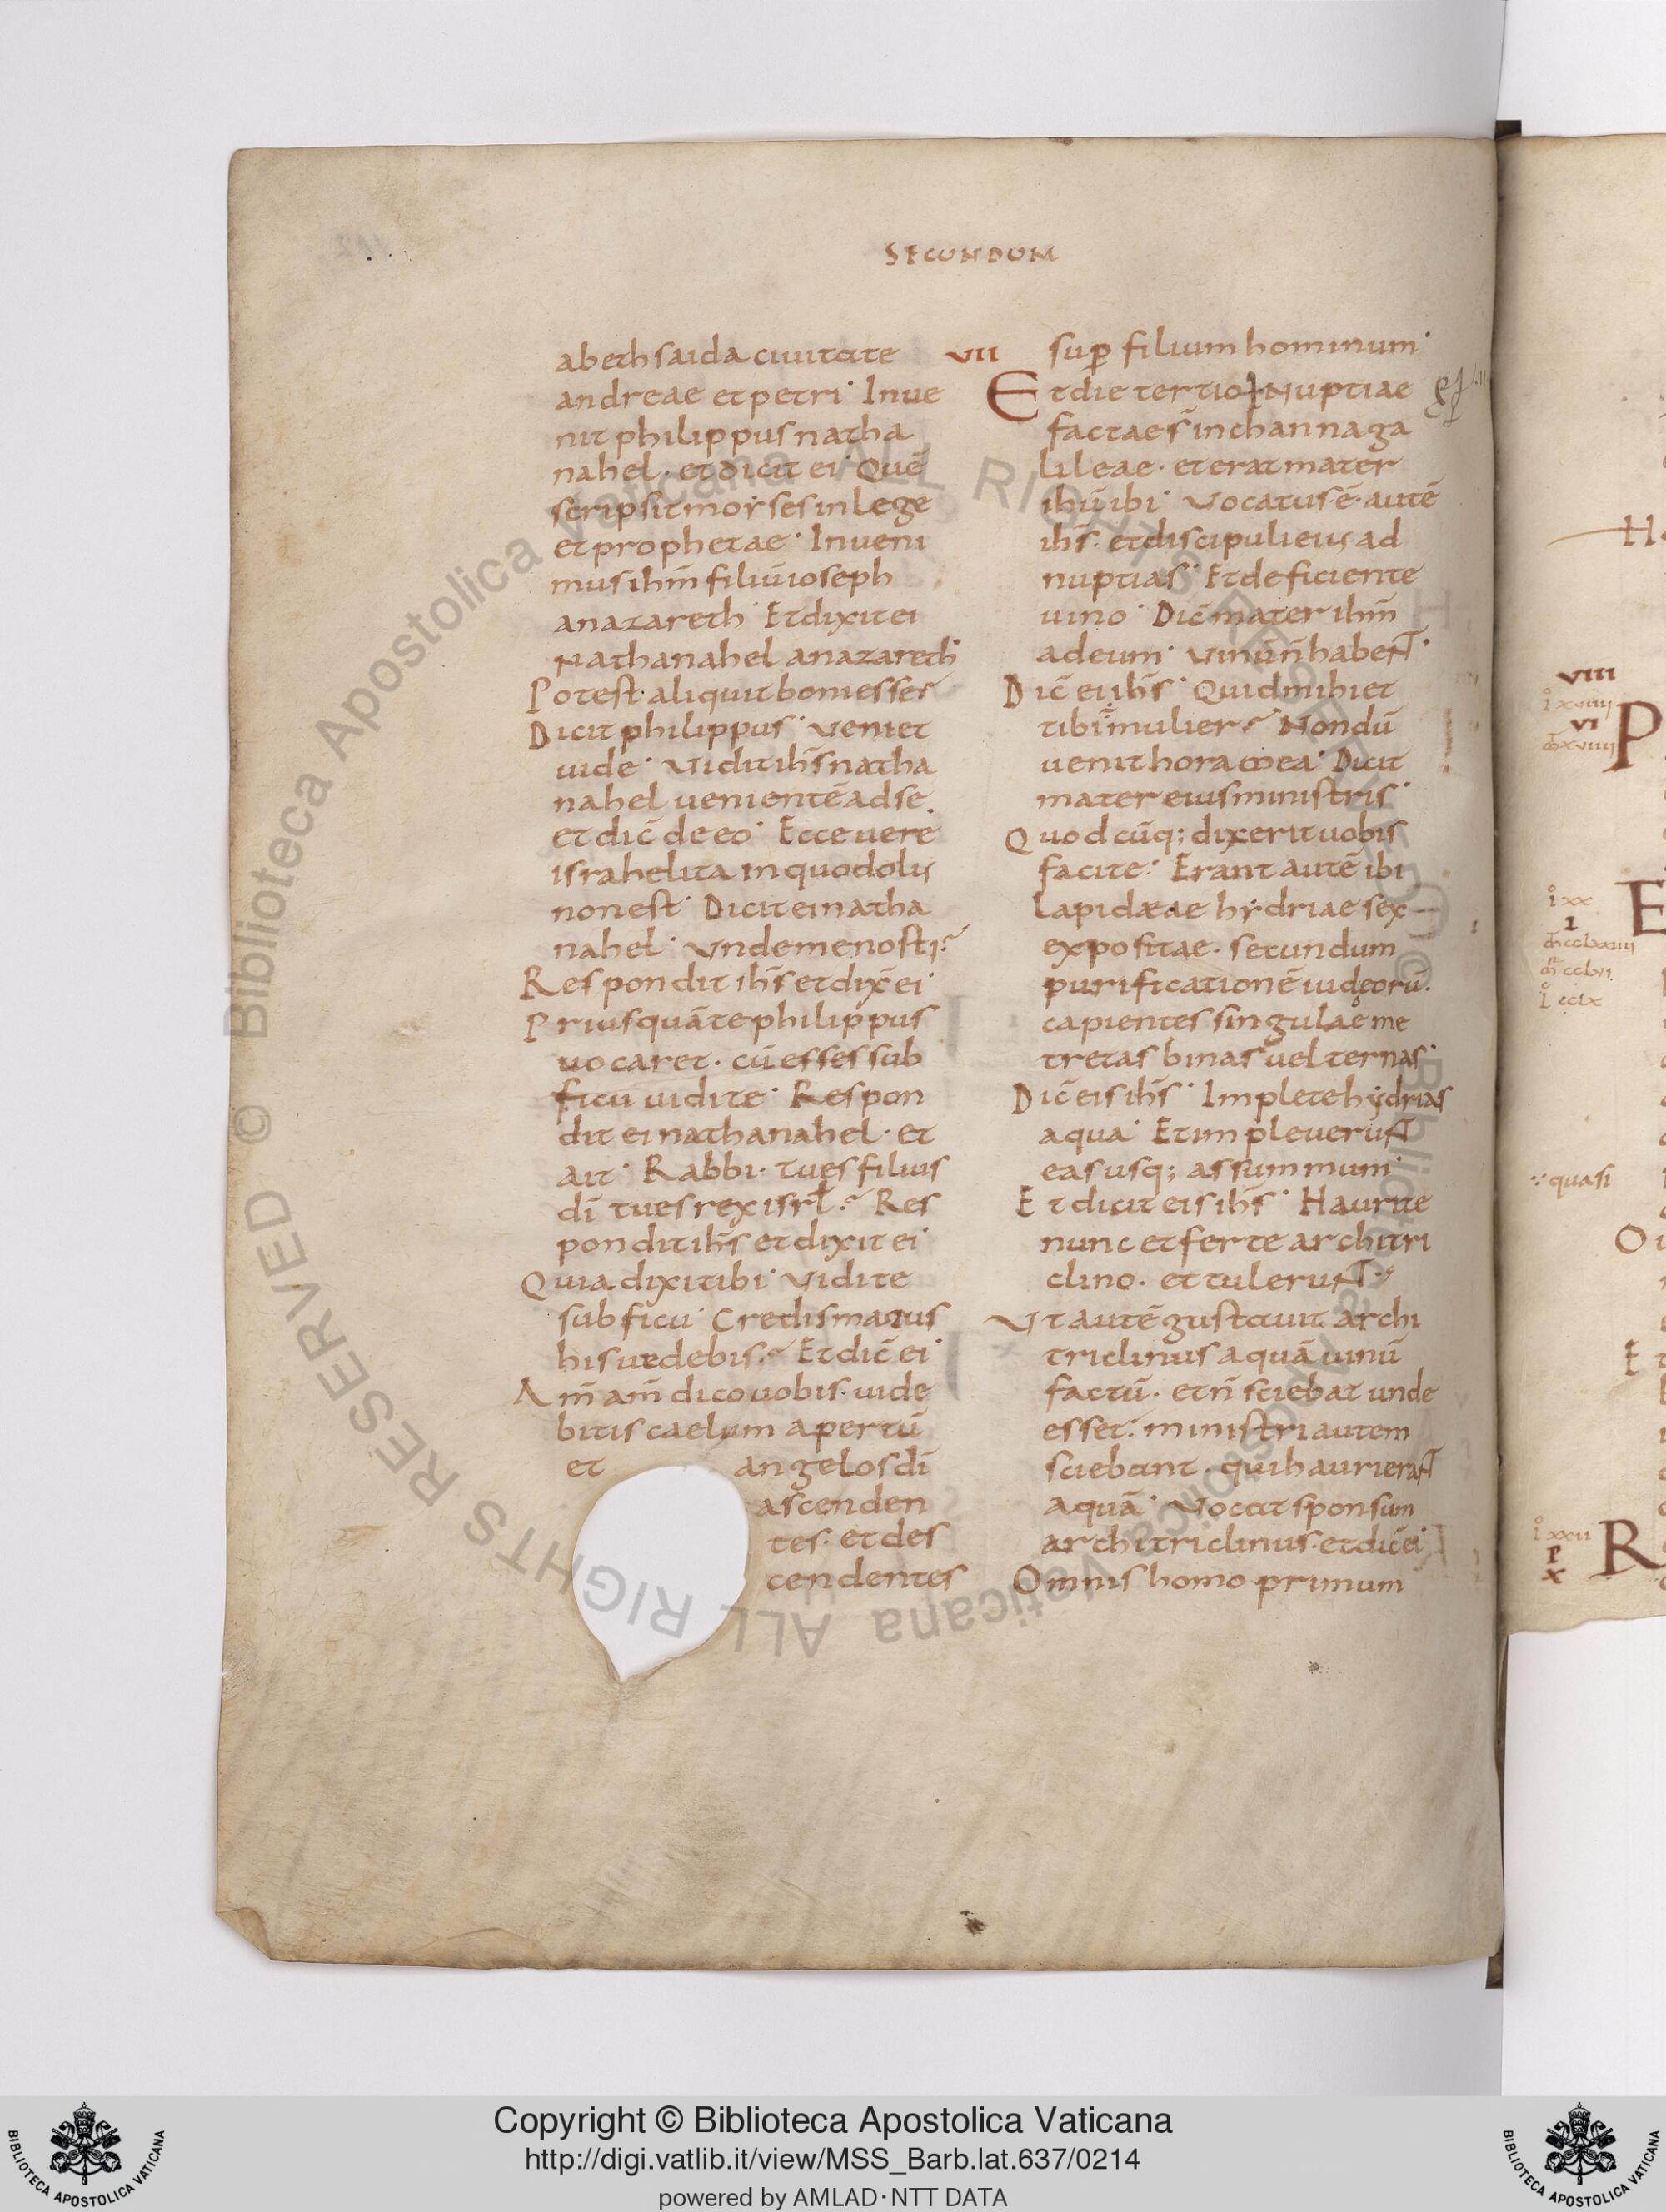 SECUNDUM
abethsaida ciuitate
andreae et petri· Inue
nit philippus natha
nahel· et dicit ei· Quē
scripsit moyses in lege
et prophetae· Inueni
mus ihm̄ filiū ioseph
a nazareth· Et dixit ei
Nathanahel a nazareth·
Potest· aliquit boni esse?
Dicit philippus· Veni et
uide· Vidit ihs̄ natha
nahel uenientē ad se·
et dic̄ de eo· Ecce uere
israhelita in quo dolus
non est· Dicit ei natha
nahel· Unde me nosti?
Respondit ihs̄ et dix̄ ei·
Priusquā te philippus
uocaret· cū esses sub
ficu uidi te· Respon
dit ei nathanahel· et
ait· Rabbi· tu es filius
dī tu es rex isrl̄· Res
pondit ihs̄ et dixit ei·
Quia dixi tibi· Vidi te
sub ficu· Credis maius
his uedebis· Et dic̄ ei·
Am̄ am̄ dico uobis· uide
bitis caelum apertū
et angelos dī
ascenden
tes· et des
cendentes
VII
sup filium hominum·
Et die tertio Nuptiae
factae s̄ in channa ga
lileae· et erat mater
ihū ibi· Vocatus· ē· autē
ihs̄· et discipuli eius ad
nuptias· Et deficiente
uino· Dic̄ mater ihm̄
ad eum· Vinū n̄ habent·
Dic̄ ei ihs̄· Quid mihi et
tibi mulier? Nondū
uenit hora mea· Dicit
mater eius ministris·
Quodcūq; dixerit uobis
facite· Erant autē ibi
lapidaeae hydriae sex
expositae· secundum
purificationē iudęorū·
capientes singulae me
tretas binas uel ternas·
Dic̄ eis ihs̄· Implete hydrias
aqua· Et impleuerunt
eas usq; assummum·
Et dicit eis ihs̄· Haurite
nunc et ferte architri
clino· et tulerunt·
Ut autē gustauit archi
triclinus aquā uinū
factū· et n̄ sciebat unde
esset· ministri autem
sciebant· qui haurierant
aquā· Vocat sponsum
architriclinus· et dic̄ ei·
Omnis homo primum
VIII
VI
P
E
I
quasi
R
X
BIBLIOTECA APOSTOLICA VATICANA
Copyright © Biblioteca Apostolica Vaticana
http://digi.vatlib.it/view/MSS_Barb.lat.637/0214
powered by AMLAD·NTT DATA
BIBLIOTECA APOSTOLICA VATICANA
© Biblioteca Apostolica Vaticana ALL RIGHTS RESERVED